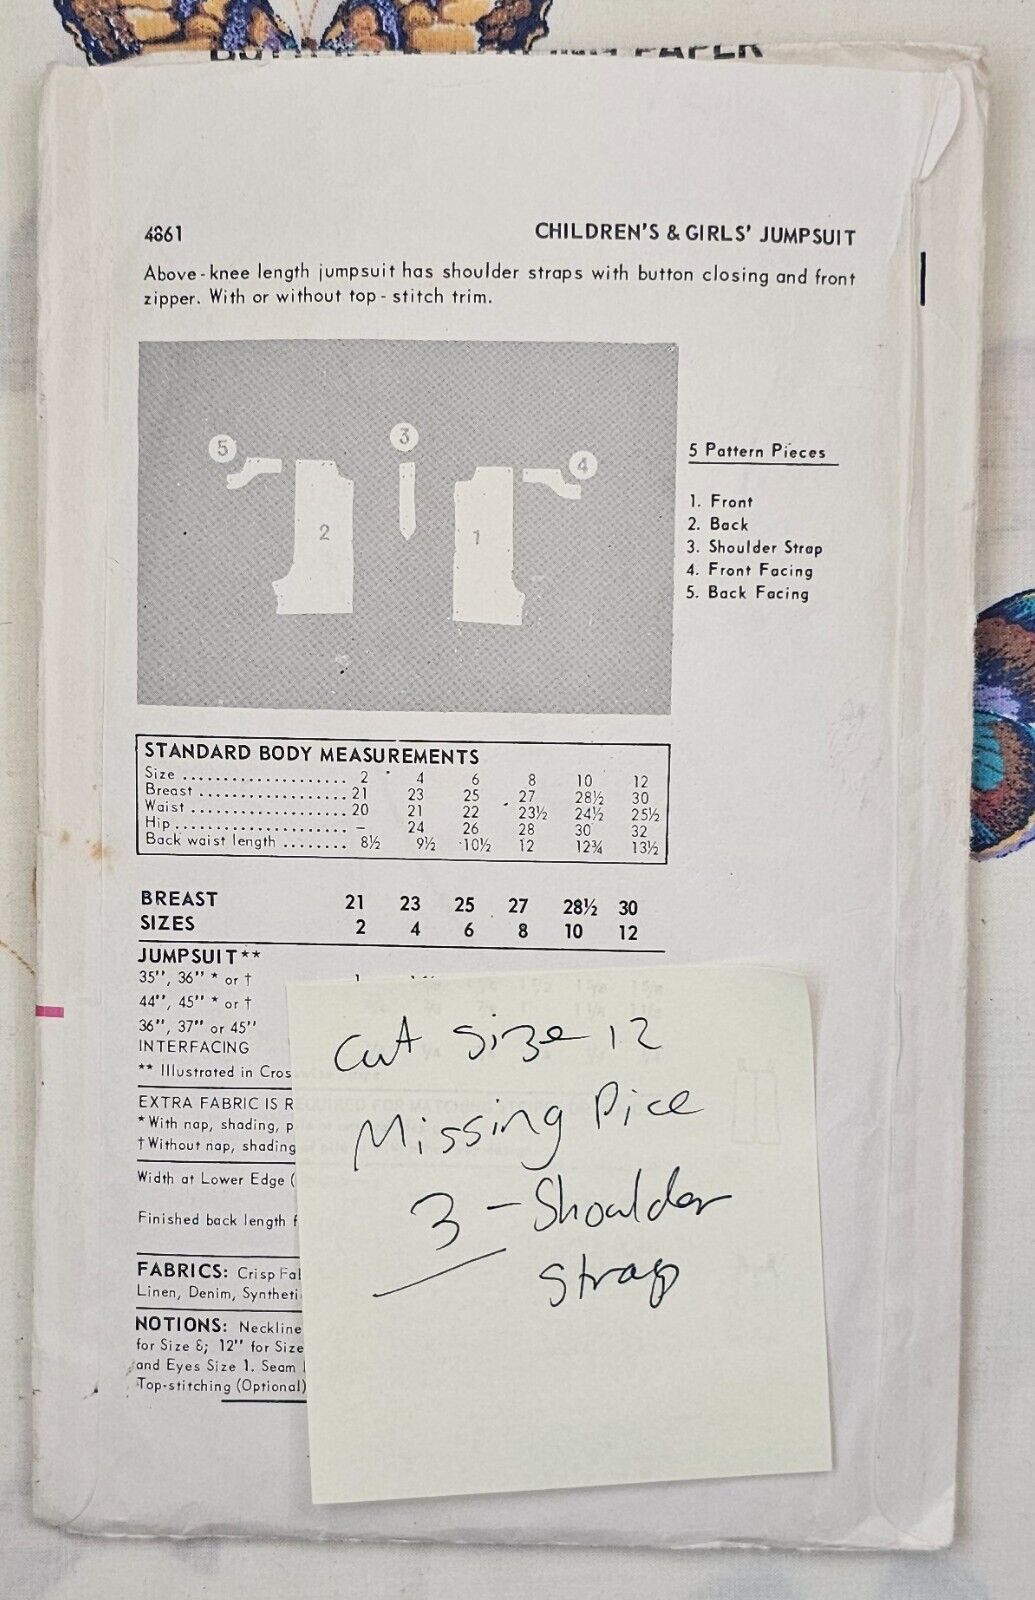 4861 CHILDREN'S & GIRLS' JUMPSUIT
Above-knee length jumpsuit has shoulder straps with button closing and front
zipper. With or without top-stitch trim.
5
3
4
2
1
5 Pattern Pieces
1. Front
2. Back
3. Shoulder Strap
4. Front Facing
5. Back Facing
STANDARD BODY MEASUREMENTS
Size .................... 2 4 6 8 10 12
Breast .................. 21 23 25 27 28½ 30
Waist ................... 20 21 22 23½ 24½ 25½
Hip ..................... – 24 26 28 30 32
Back waist length ........ 8½ 9½ 10½ 12 12¾ 13½
BREAST 21 23 25 27 28½ 30
SIZES 2 4 6 8 10 12
JUMPSUIT**
35", 36" * or †
44", 45" * or †
36", 37" or 45"
INTERFACING
** Illustrated in Cros
EXTRA FABRIC IS R
*With nap, shading, p
†Without nap, shading
Width at Lower Edge (
Finished back length f
FABRICS: Crisp Fa
Linen, Denim, Syntheti
NOTIONS: Neckline
for Size 8; 12" for Size
and Eyes Size 1. Seam
Top-stitching (Optional)
Cut Size 12
Missing Pice
3 - Shoulder
Strap